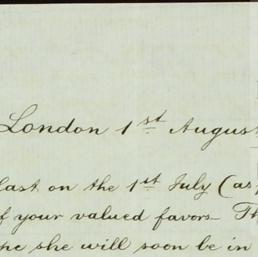 London 1st August
last on the 1st July (as
of your valued favors— Th
she will soon be in